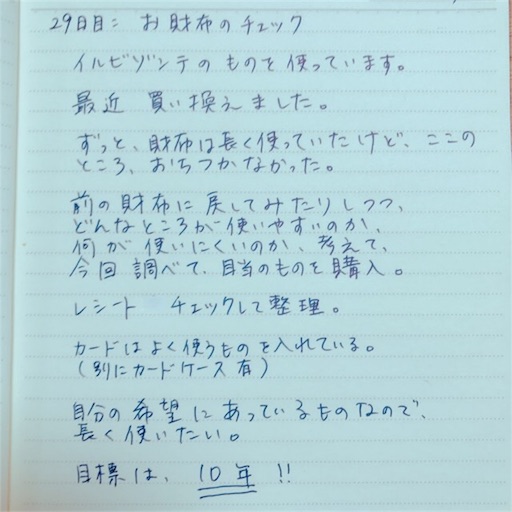 29日目: お財布のチェック
イルビゾンテのものを使っています。
最近 買い換えました。
ずっと、財布は長く使っていたけど、ここの
ところ、おちつかなかった。
前の財布に戻してみたりしつつ、
どんなところが使いやすいのか、
何が使いにくいのか、考えて、
今回 調べて、目当のものを購入。
レシート チェックして整理。
カードはよく使うものを入れている。
(別にカードケース有)
自分の希望にあっているものなので、
長く使いたい。
目標は、10年!!